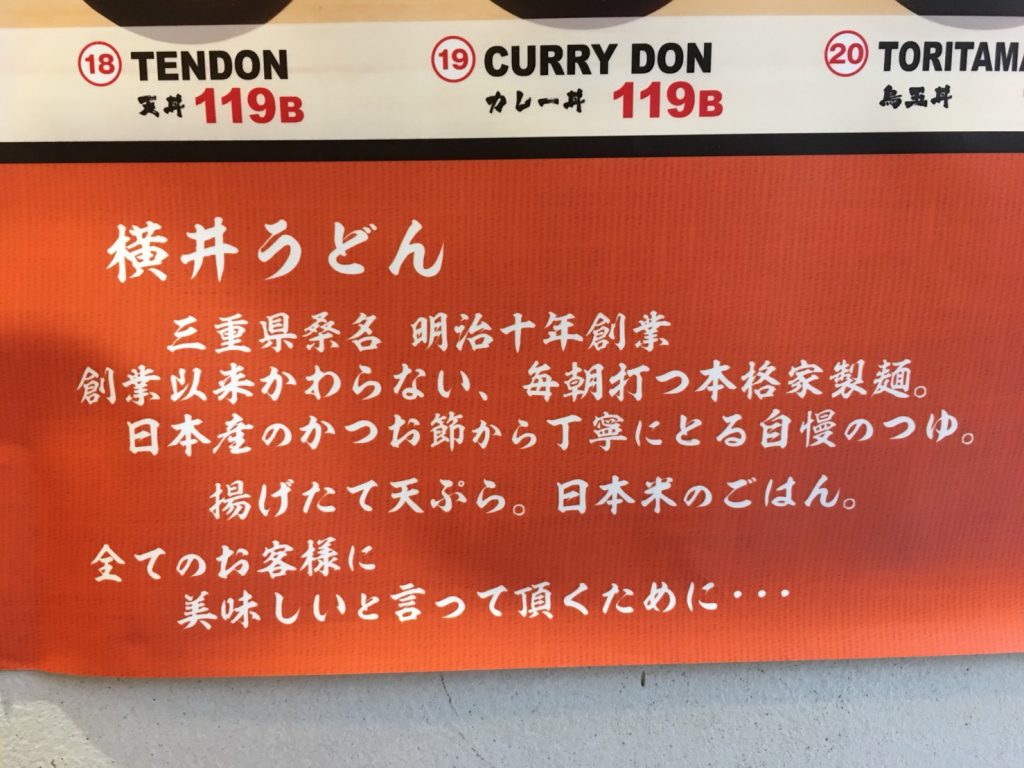 18 TENDON
天丼 119B
19 CURRY DON
カレー丼 119B
20 TORITAMA
鳥玉丼
横井うどん
三重県桑名 明治十年創業
創業以来かわらない、毎朝打つ本格家製麺。
日本産のかつお節から丁寧にとる自慢のつゆ。
揚げたて天ぷら。日本米のごはん。
全てのお客様に
美味しいと言って頂くために・・・